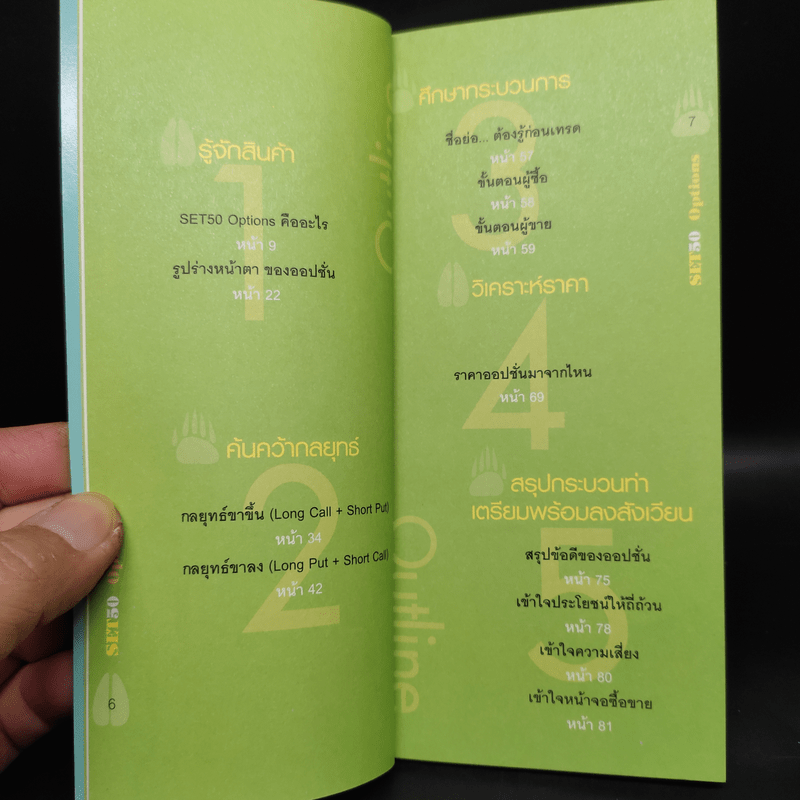 รู้จักสินค้า
1
SET50 Options คืออะไร
หน้า 9
รูปร่างหน้าตา ของออปชั่น
หน้า 22
ค้นคว้ากลยุทธ์
2
กลยุทธ์ขาขึ้น (Long Call + Short Put)
หน้า 34
กลยุทธ์ขาลง (Long Put + Short Call)
หน้า 42
SET50
6
Outline
ศึกษากระบวนการ
3
ชื่อย่อ... ต้องรู้ก่อนเทรด
หน้า 57
ขั้นตอนผู้ซื้อ
หน้า 58
ขั้นตอนผู้ขาย
หน้า 59
วิเคราะห์ราคา
4
ราคาออปชั่นมาจากไหน
หน้า 69
สรุปกระบวนท่า
เตรียมพร้อมลงสังเวียน
5
สรุปข้อดีของออปชั่น
หน้า 75
เข้าใจประโยชน์ให้ถี่ถ้วน
หน้า 78
เข้าใจความเสี่ยง
หน้า 80
เข้าใจหน้าจอซื้อขาย
หน้า 81
7
SET50 Options
Outline